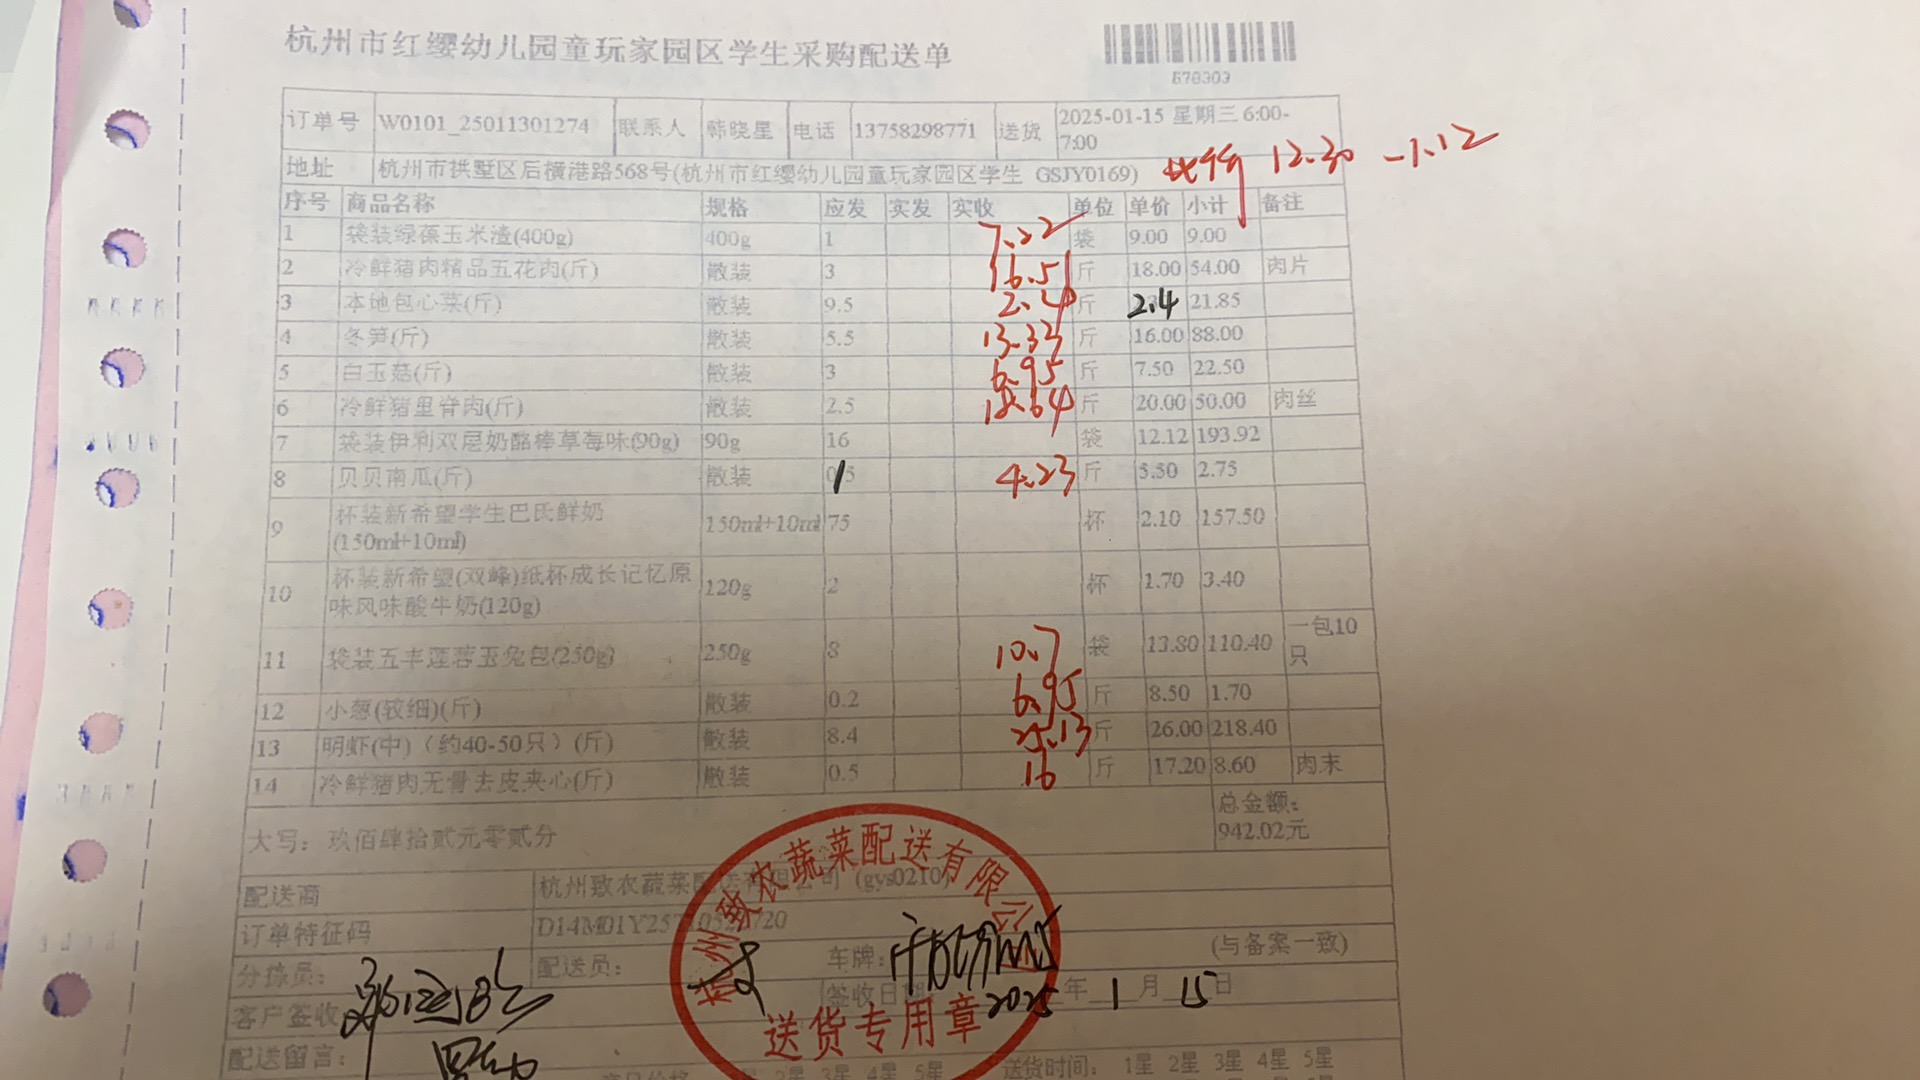 杭州市红缨幼儿园童玩家园区学生采购配送单
678303
订单号 W0101_25011301274 联系人 韩晓星 电话 13758298771 送货 2025-01-15 星期三 6:00-7:00
地址 杭州市拱墅区后横港路568号(杭州市红缨幼儿园童玩家园区学生 GSJY0169)
12.30 -1.12
序号 商品名称 规格 应发 实发 实收 单位 单价 小计 备注
1 袋装绿葆玉米渣(400g) 400g 1 7.22 袋 9.00 9.00
2 冷鲜猪肉精品五花肉(斤) 散装 3 16.51 斤 18.00 54.00 肉片
3 本地包心菜(斤) 散装 9.5 2.4 斤 2.4 21.85
4 冬笋(斤) 散装 5.5 13.33 斤 16.00 88.00
5 白玉菇(斤) 散装 3 6.95 斤 7.50 22.50
6 冷鲜猪里脊肉(斤) 散装 2.5 18.64 斤 20.00 50.00 肉丝
7 袋装伊利双层奶酪棒草莓味(90g) 90g 16 袋 12.12 193.92
8 贝贝南瓜(斤) 散装 1 4.23 斤 5.50 2.75
9 杯装新希望学生巴氏鲜奶(150ml+10ml) 150ml+10ml 75 杯 2.10 157.50
10 杯装新希望(双峰)纸杯成长记忆原味风味酸牛奶(120g) 120g 2 杯 1.70 3.40
11 袋装五丰莲蓉玉兔包(250g) 250g 8 10.7 袋 13.80 110.40 一包10只
12 小葱(较细)(斤) 散装 0.2 6.95 斤 8.50 1.70
13 明虾(中)（约40-50只）(斤) 散装 8.4 25.13 斤 26.00 218.40
14 冷鲜猪肉无骨去皮夹心(斤) 散装 0.5 16 斤 17.20 8.60 肉末
大写：玖佰肆拾贰元零贰分 总金额：942.02元
配送商 杭州致农蔬菜配送有限公司 (gys0210)
订单特征码
分拣员： 配送员： 车牌： (与备案一致)
客户签收 签收日期 2025年 1月 15日
配送留言：
杭州致农蔬菜配送有限公司
送货专用章
2星 3星 4星 5星 送货时间： 1星 2星 3星 4星 5星